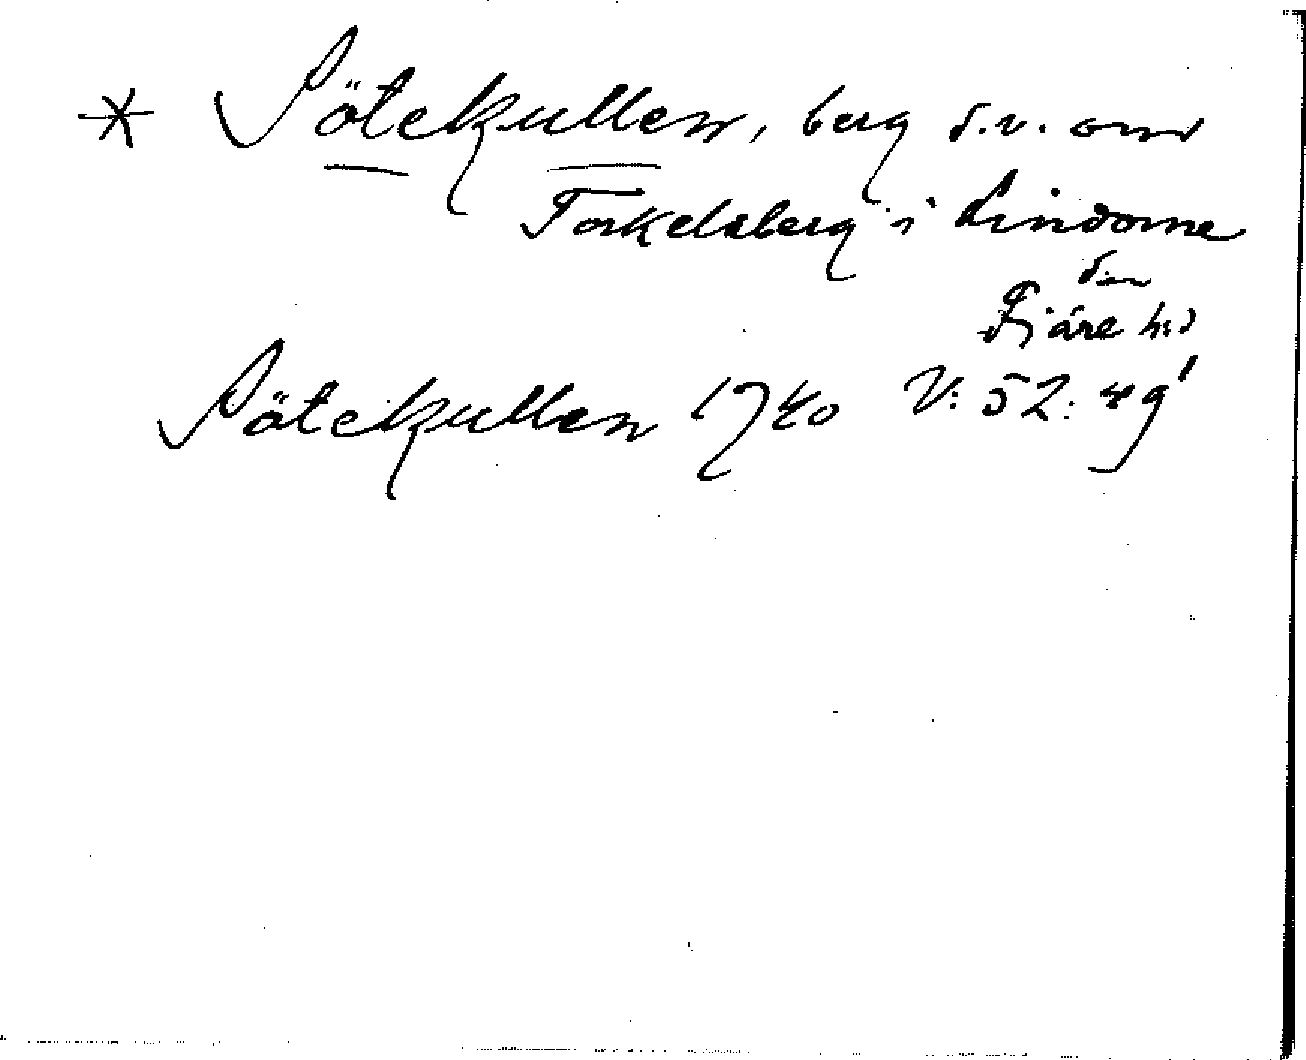 * Sötekullen, berg s.v. om
Torkelsberg i Lindome
sn
Fjäre hd
Sötekullen 1740 V: 52: 49'